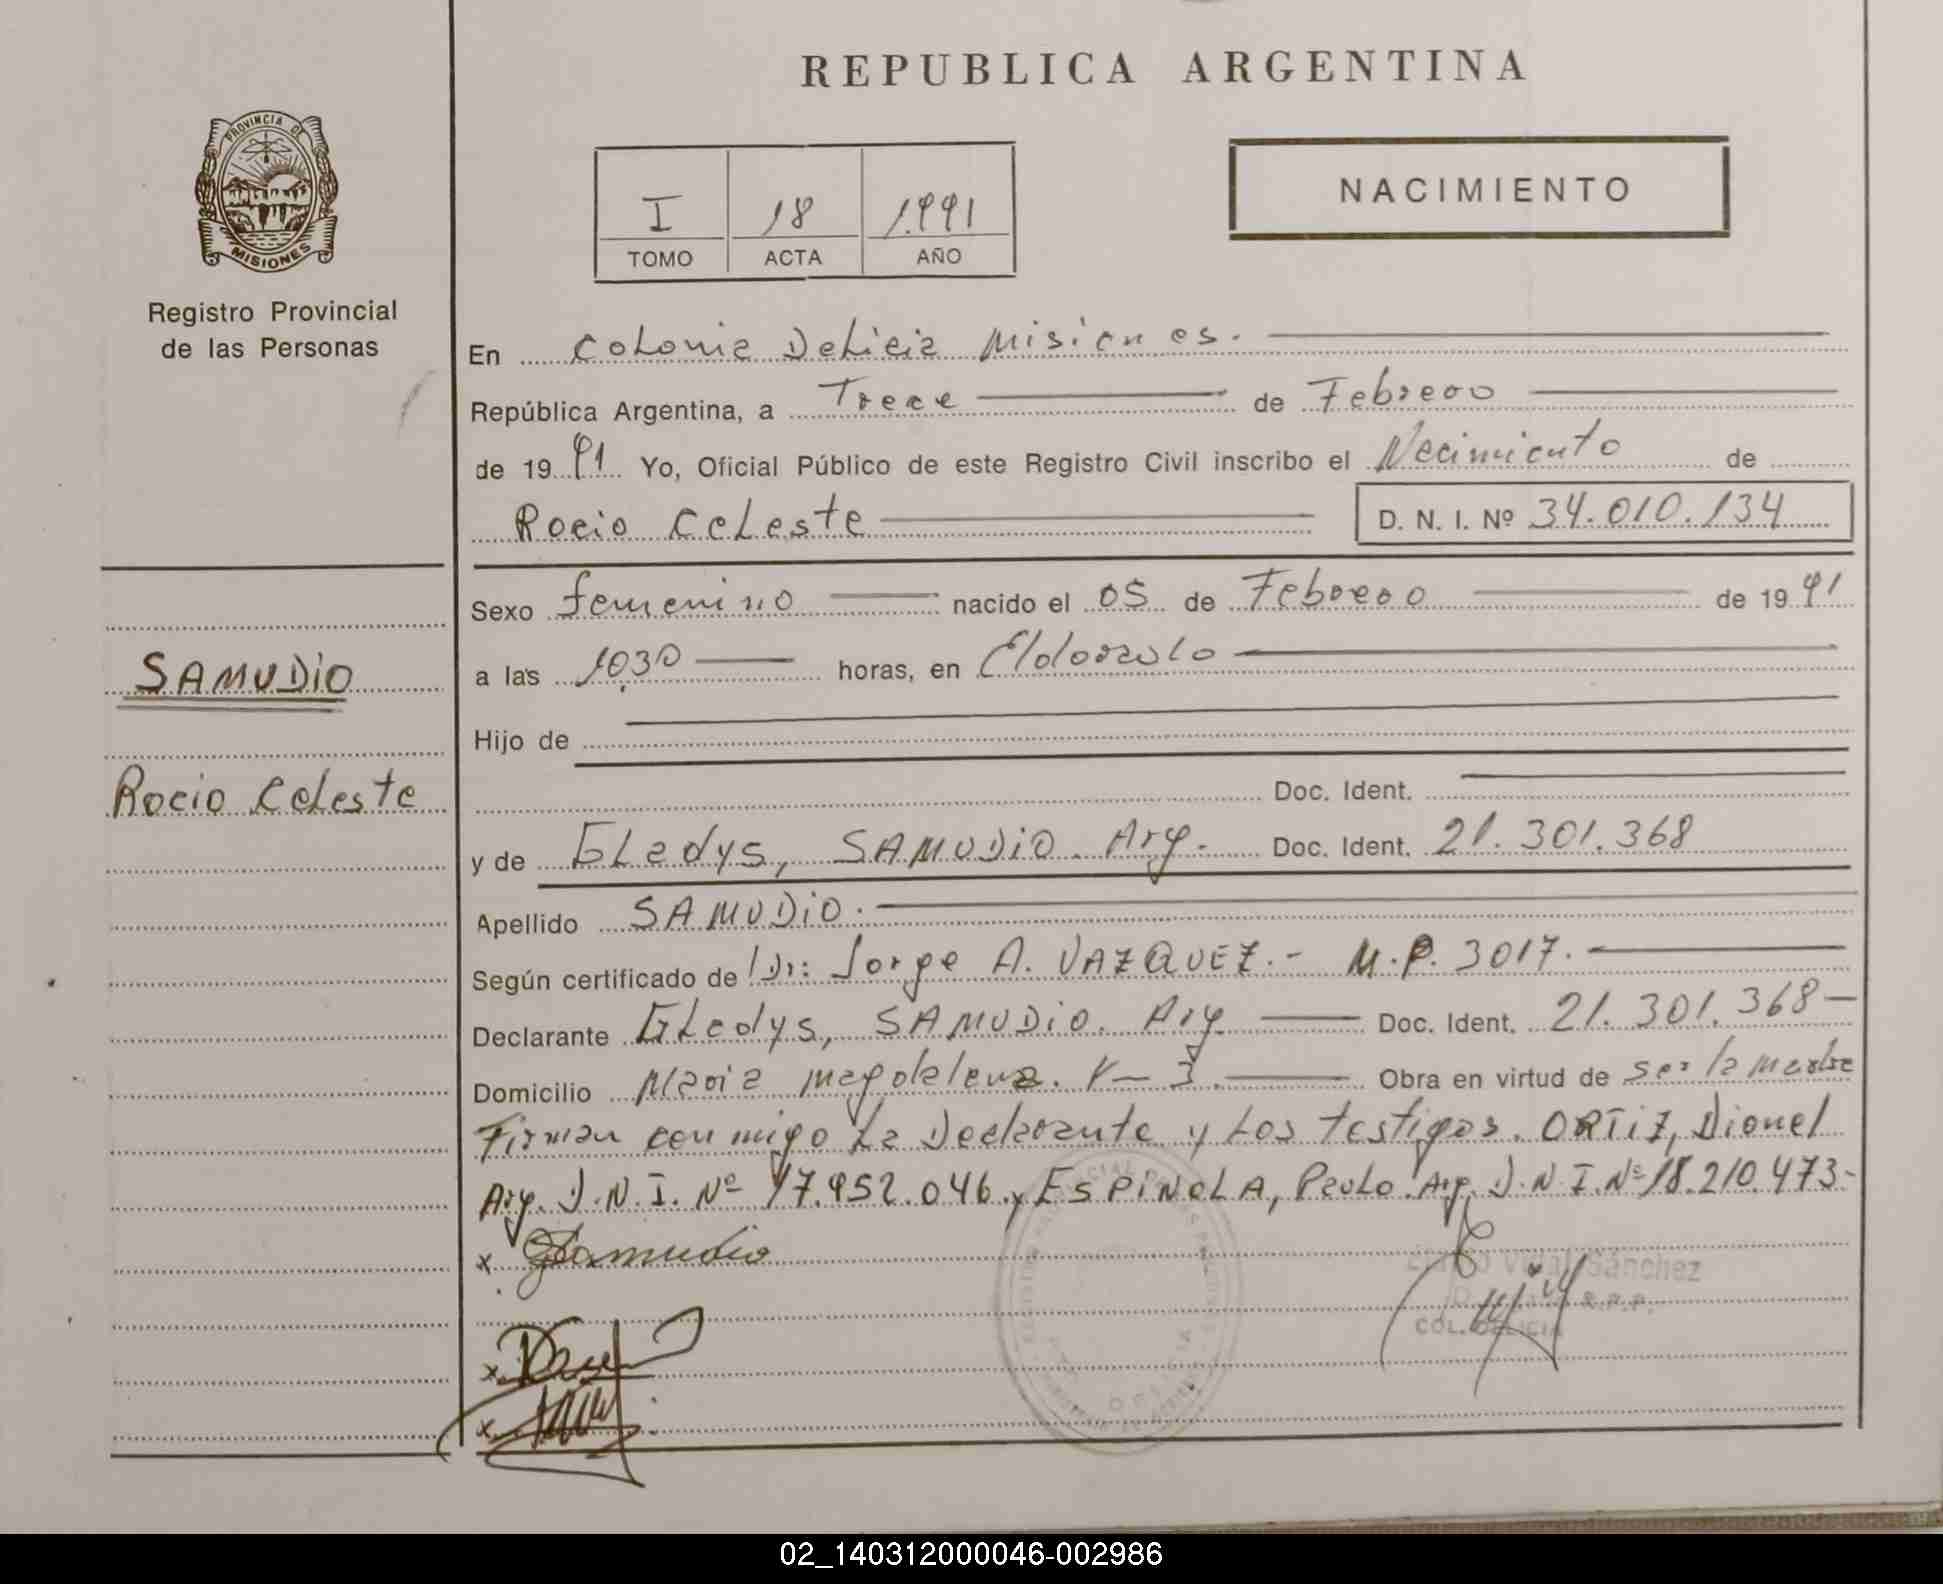 REPUBLICA ARGENTINA
PROVINCIA DE
MISIONES
Registro Provincial
de las Personas
I 18 1.991
TOMO ACTA AÑO
NACIMIENTO
En Colonia Delicia Misiones.
República Argentina, a Trece de Febrero
de 19 91 Yo, Oficial Público de este Registro Civil inscribo el Nacimiento de
Rocio Celeste D. N. I. Nº 34.010.134
Sexo femenino nacido el 05 de Febrero de 19 91
a las 10,30 horas, en Eldorado
SAMUDIO
Hijo de
Rocio Celeste
Doc. Ident.
y de Gladys, SAMUDIO. Arg. Doc. Ident. 21.301.368
Apellido SAMUDIO.
Según certificado de Dr: Jorge A. VAZQUEZ.- M.P. 3017.
Declarante Gladys, SAMUDIO. Arg. Doc. Ident. 21.301.368-
Domicilio Maria magdalena. K- 3. Obra en virtud de ser la madre
Firman conmigo La Declarante y Los testigos. ORTIZ, Dionel
Arg. D.N.I. Nº 17.952.046 y ESPINOLA, Paulo. Arg. D.N.I. Nº 18.210.473-
x. GSamudio
Vidal Sánchez
R.P.P.
COL. DELICIA
x.
x.
OFICINA
02_140312000046-002986